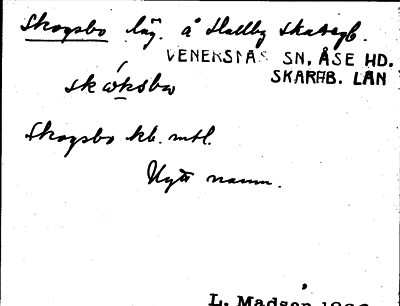 Skogsbo läg. å Hallby skattegb.
VENERSNÄS SN, ÅSE HD.
SKARAB. LÄN
skóksbω
Skogsbo kb. mtl.
Nytt namn.
L. Madsen